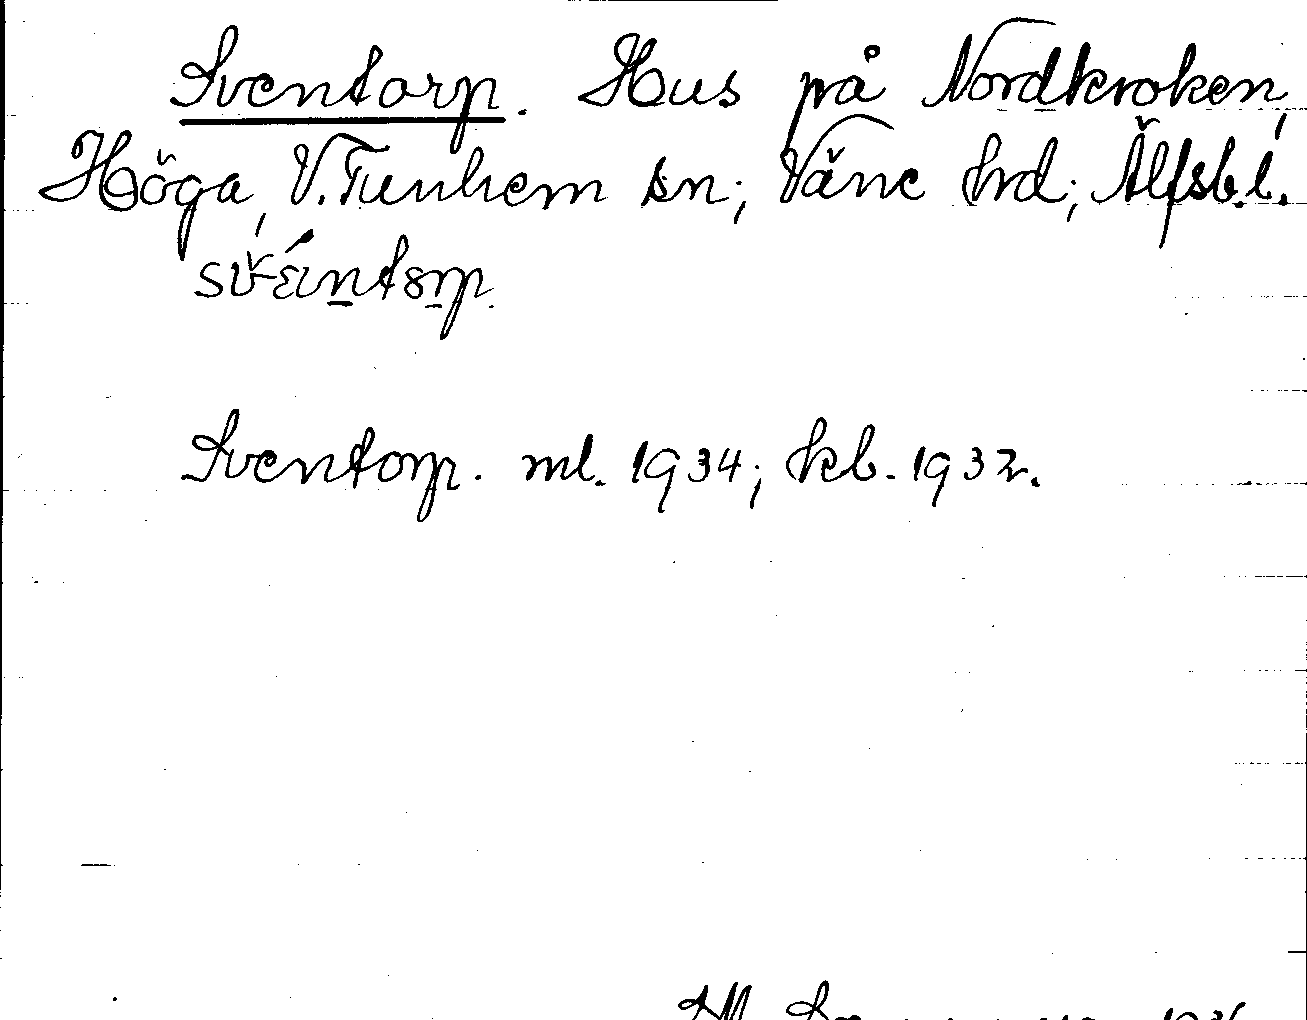 Sventorp. Hus på Nordkroken,
Höga, V. Tunhem sn; Väne hrd; Älfsb. l.
Sventorp. ml. 1934; kb. 1932.